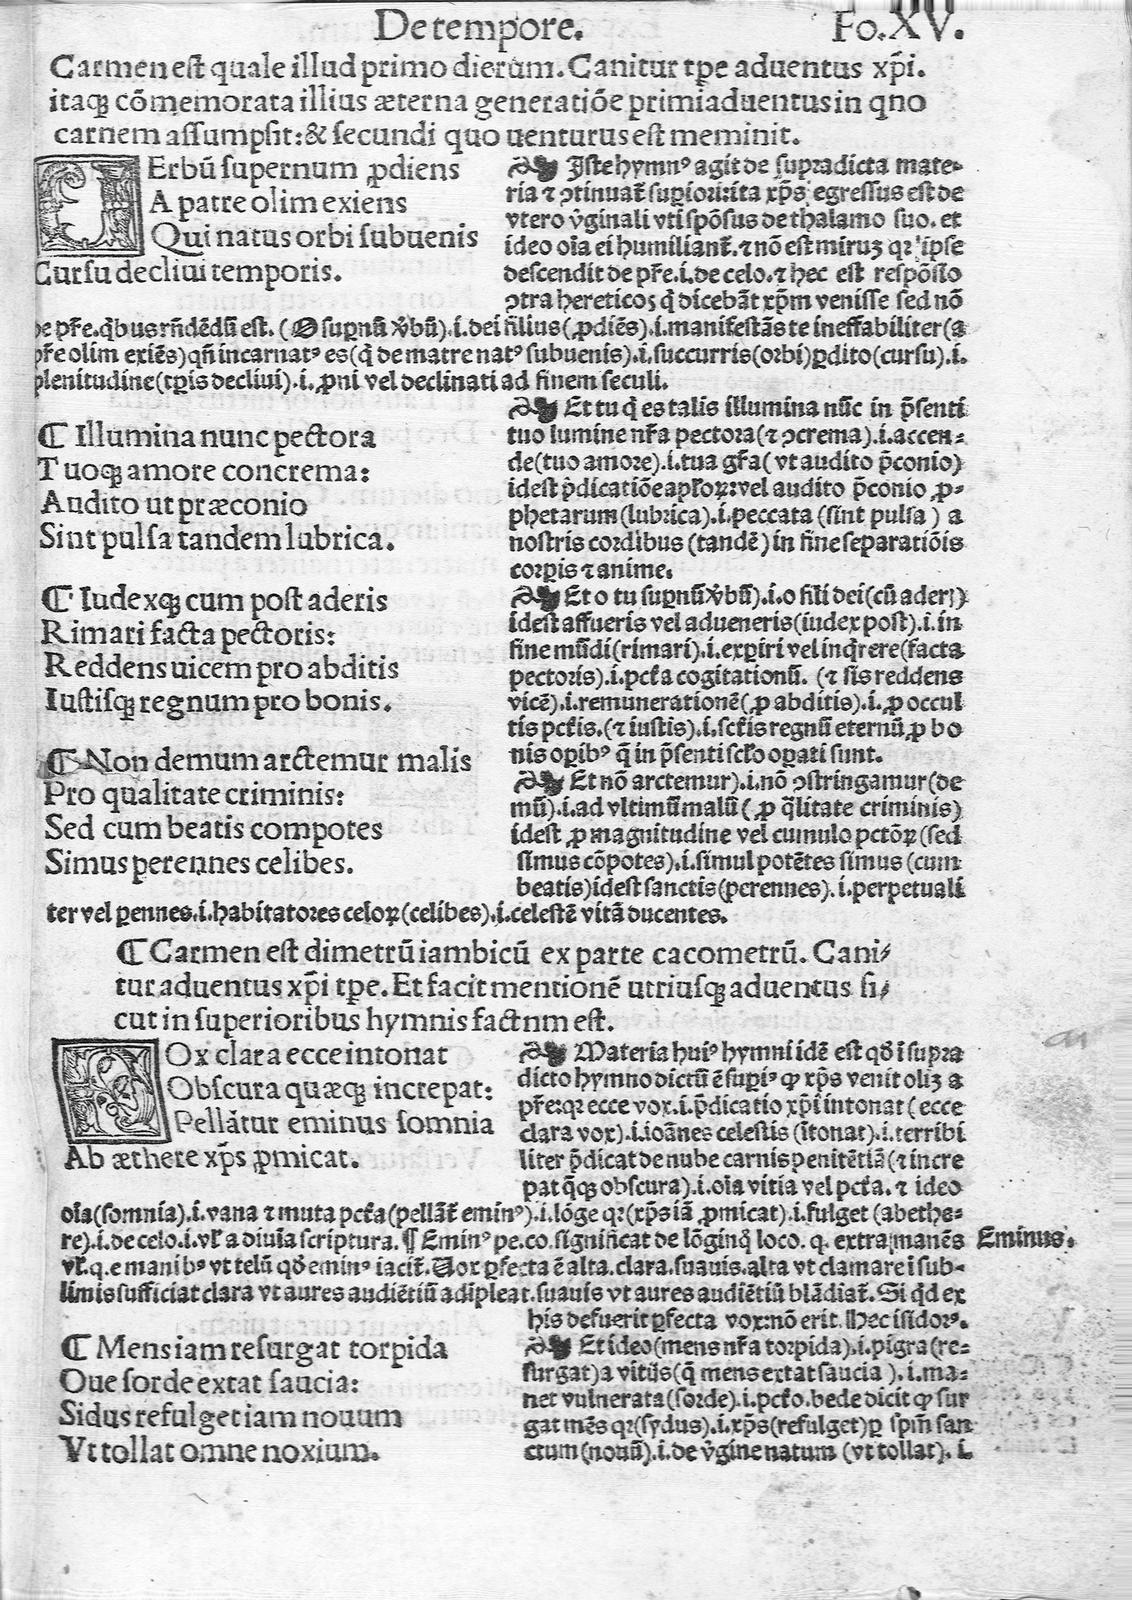 De tempore. Fo.XV.
Carmen est quale illud primo dierum. Canitur tp̄e aduentus xp̄i.
itaq; cōmemorata illius æterna generatiōe primi aduentus in qno
carnem assumpsit: & secundi quo uenturus est meminit.
Erbū supernum ꝓdiens
A patre olim exiens
Qui natus orbi subuenis
Cursu decliui temporis.
Iste hymnꝰ agit de supradicta mate-
ria ⁊ ɔtinuat̄ supiori: ita xp̄s egressus est de
vtero v̄ginali vti spōsus de thalamo suo. et
ideo oīa ei humiliant̄. ⁊ nō est miruꝫ qꝛ ipse
descendit de pr̄e .i. de celo. ⁊ hec est respōsio
ɔtra hereticos q̄ dicebāt xp̄m venisse sed nō
de pr̄e. qbus rn̄dēdū est. (O supnū v̄bū) .i. dei filius (ꝓdiēs) .i. manifestās te ineffabiliter (a
pr̄e olim exiēs) qn̄ incarnatꝰ es (q̄ de matre natꝰ subuenis) .i. succurris (orbi) ꝑdito (cursu) .i.
plenitudine (tp̄is decliui) .i. ꝓni vel declinati ad finem seculi.
¶ Illumina nunc pectora
Tuoq; amore concrema:
Audito ut præconio
Sint pulsa tandem lubrica.
Et tu q̄ es talis illumina nūc in p̄senti
tuo lumine nr̄a pectora (⁊ ɔcrema) .i. accen-
de (tuo amore) .i. tua gr̄a (vt audito p̄conio)
idest p̄dicatiōe apl̄oꝝ: vel audito p̄conio ꝓ-
phetarum (lubrica) .i. peccata (sint pulsa) a
nostris cordibus (tandē) in fine separatiōis
corpis ⁊ anime.
¶ Iudexq; cum post aderis
Rimari facta pectoris:
Reddens uicem pro abditis
Iustisq; regnum pro bonis.
Et o tu supnū v̄bū) .i. o fili dei (cū aderꝭ)
idest affueris vel adueneris (iudex post) .i. in
fine mūdi (rimari) .i. exꝑiri vel inqrere (facta
pectoris) .i. pct̄a cogitationū. (⁊ sīs reddens
vicē) .i. remunerationē (ꝓ abditis) .i. ꝓ occul
tis pctīs. (⁊ iustis) .i. sctīs regnū eternū ꝓ bo
nis opibꝰ q̄ in p̄senti scl̄o opati sunt.
¶ Non demum arctemur malis
Pro qualitate criminis:
Sed cum beatis compotes
Simus perennes celibes.
Et nō arctemur) .i. nō ɔstringamur (de
mū) .i. ad vltimū malū (ꝓ q̄litate criminis)
idest ꝓ magnitudine vel cumulo pctōꝝ (sed
simus cōpotes) .i. simul potētes simus (cum
beatis) idest sanctis (perennes) .i. perpetuali
ter vel ꝑennes .i. habitatores celoꝝ (celibes) .i. celestē vitā ducentes.
¶ Carmen est dimetrū iambicū ex parte cacometrū. Cani-
tur aduentus xp̄i tp̄e. Et facit mentionē utriusq; aduentus si-
cut in superioribus hymnis factnm est.
Ox clara ecce intonat
Obscura quæq; increpat:
Pellātur eminus somnia
Ab æthere xp̄s ꝓmicat.
Materia huiꝰ hymni idē est qd̄ ī supra
dicto hymno dictū ē supiꝰ ꝙ xp̄s venit oliꝫ a
pr̄e: qꝛ ecce vox .i. p̄dicatio xp̄i intonat (ecce
clara vox) .i. ioānes celestis (ītonat) .i. terribi
liter p̄dicat de nube carnis penitētiā (⁊ incre
pat q̄q; obscura) .i. oīa vitia vel pct̄a. ⁊ ideo
oīa (somnia) .i. vana ⁊ muta pct̄a (pellāt̄ eminꝰ) .i. lōge qꝛ (xp̄s iā ꝓmicat) .i. fulget (ab ethe-
re) .i. de celo .i. vl̄ a diuīa scriptura. ¶ Eminꝰ pe. co. significat de lōginq̄ loco. q. extra manēs
vl̄. q. e manibꝰ vt telū qd̄ eminꝰ iacit̄. Uox ꝑfecta ē alta. clara. suauis. alta vt clamare ī sub-
limi sufficiat clara vt aures audiētiū adipleat. suauis vt aures audiētiū blādiat̄. Si qd ex
his defuerit ꝑfecta vox: nō erit. Hec isidorꝰ.
Eminus.
¶ Mens iam resurgat torpida
Que sorde extat saucia:
Sidus refulget iam nouum
Vt tollat omne noxium.
Et ideo (mens nr̄a torpida) .i. pigra (re-
surgat) a vitijs (q̄ mens extat saucia) .i. ma-
net vulnerata (sorde) .i. pct̄o. bede dicit ꝙ sur
gat mēs qꝛ (sydus) .i. xp̄s (refulget) ꝑ spm̄ san
ctum (nouū) .i. de v̄gine natum (vt tollat) .i.